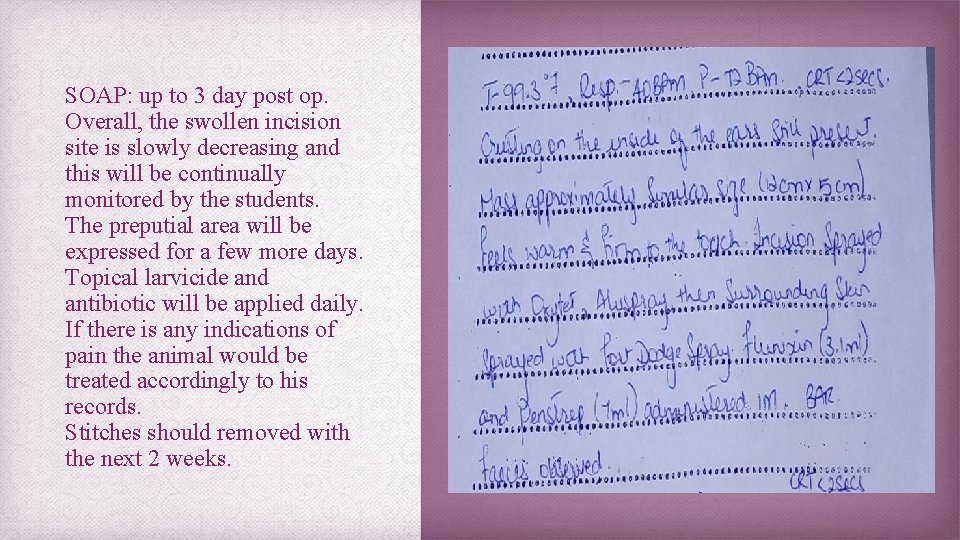 SOAP: up to 3 day post op.
Overall, the swollen incision
site is slowly decreasing and
this will be continually
monitored by the students.
The preputial area will be
expressed for a few more days.
Topical larvicide and
antibiotic will be applied daily.
If there is any indications of
pain the animal would be
treated accordingly to his
records.
Stitches should removed with
the next 2 weeks.
T-99.3°F, Resp-40BPM, P-72BPM, CRT<2secs.
Crusting on the inside of the ears still present.
Mass approximately similar size (12cm x 5cm)
feels warm & firm to the touch. Incision sprayed
with Oxytet, Aluspray then surrounding skin
sprayed with Fort Dodge Spray. Flunixin (3.1ml)
and Penstrep (7ml) administered IM. BAR.
faeces observed.
CRT<2secs